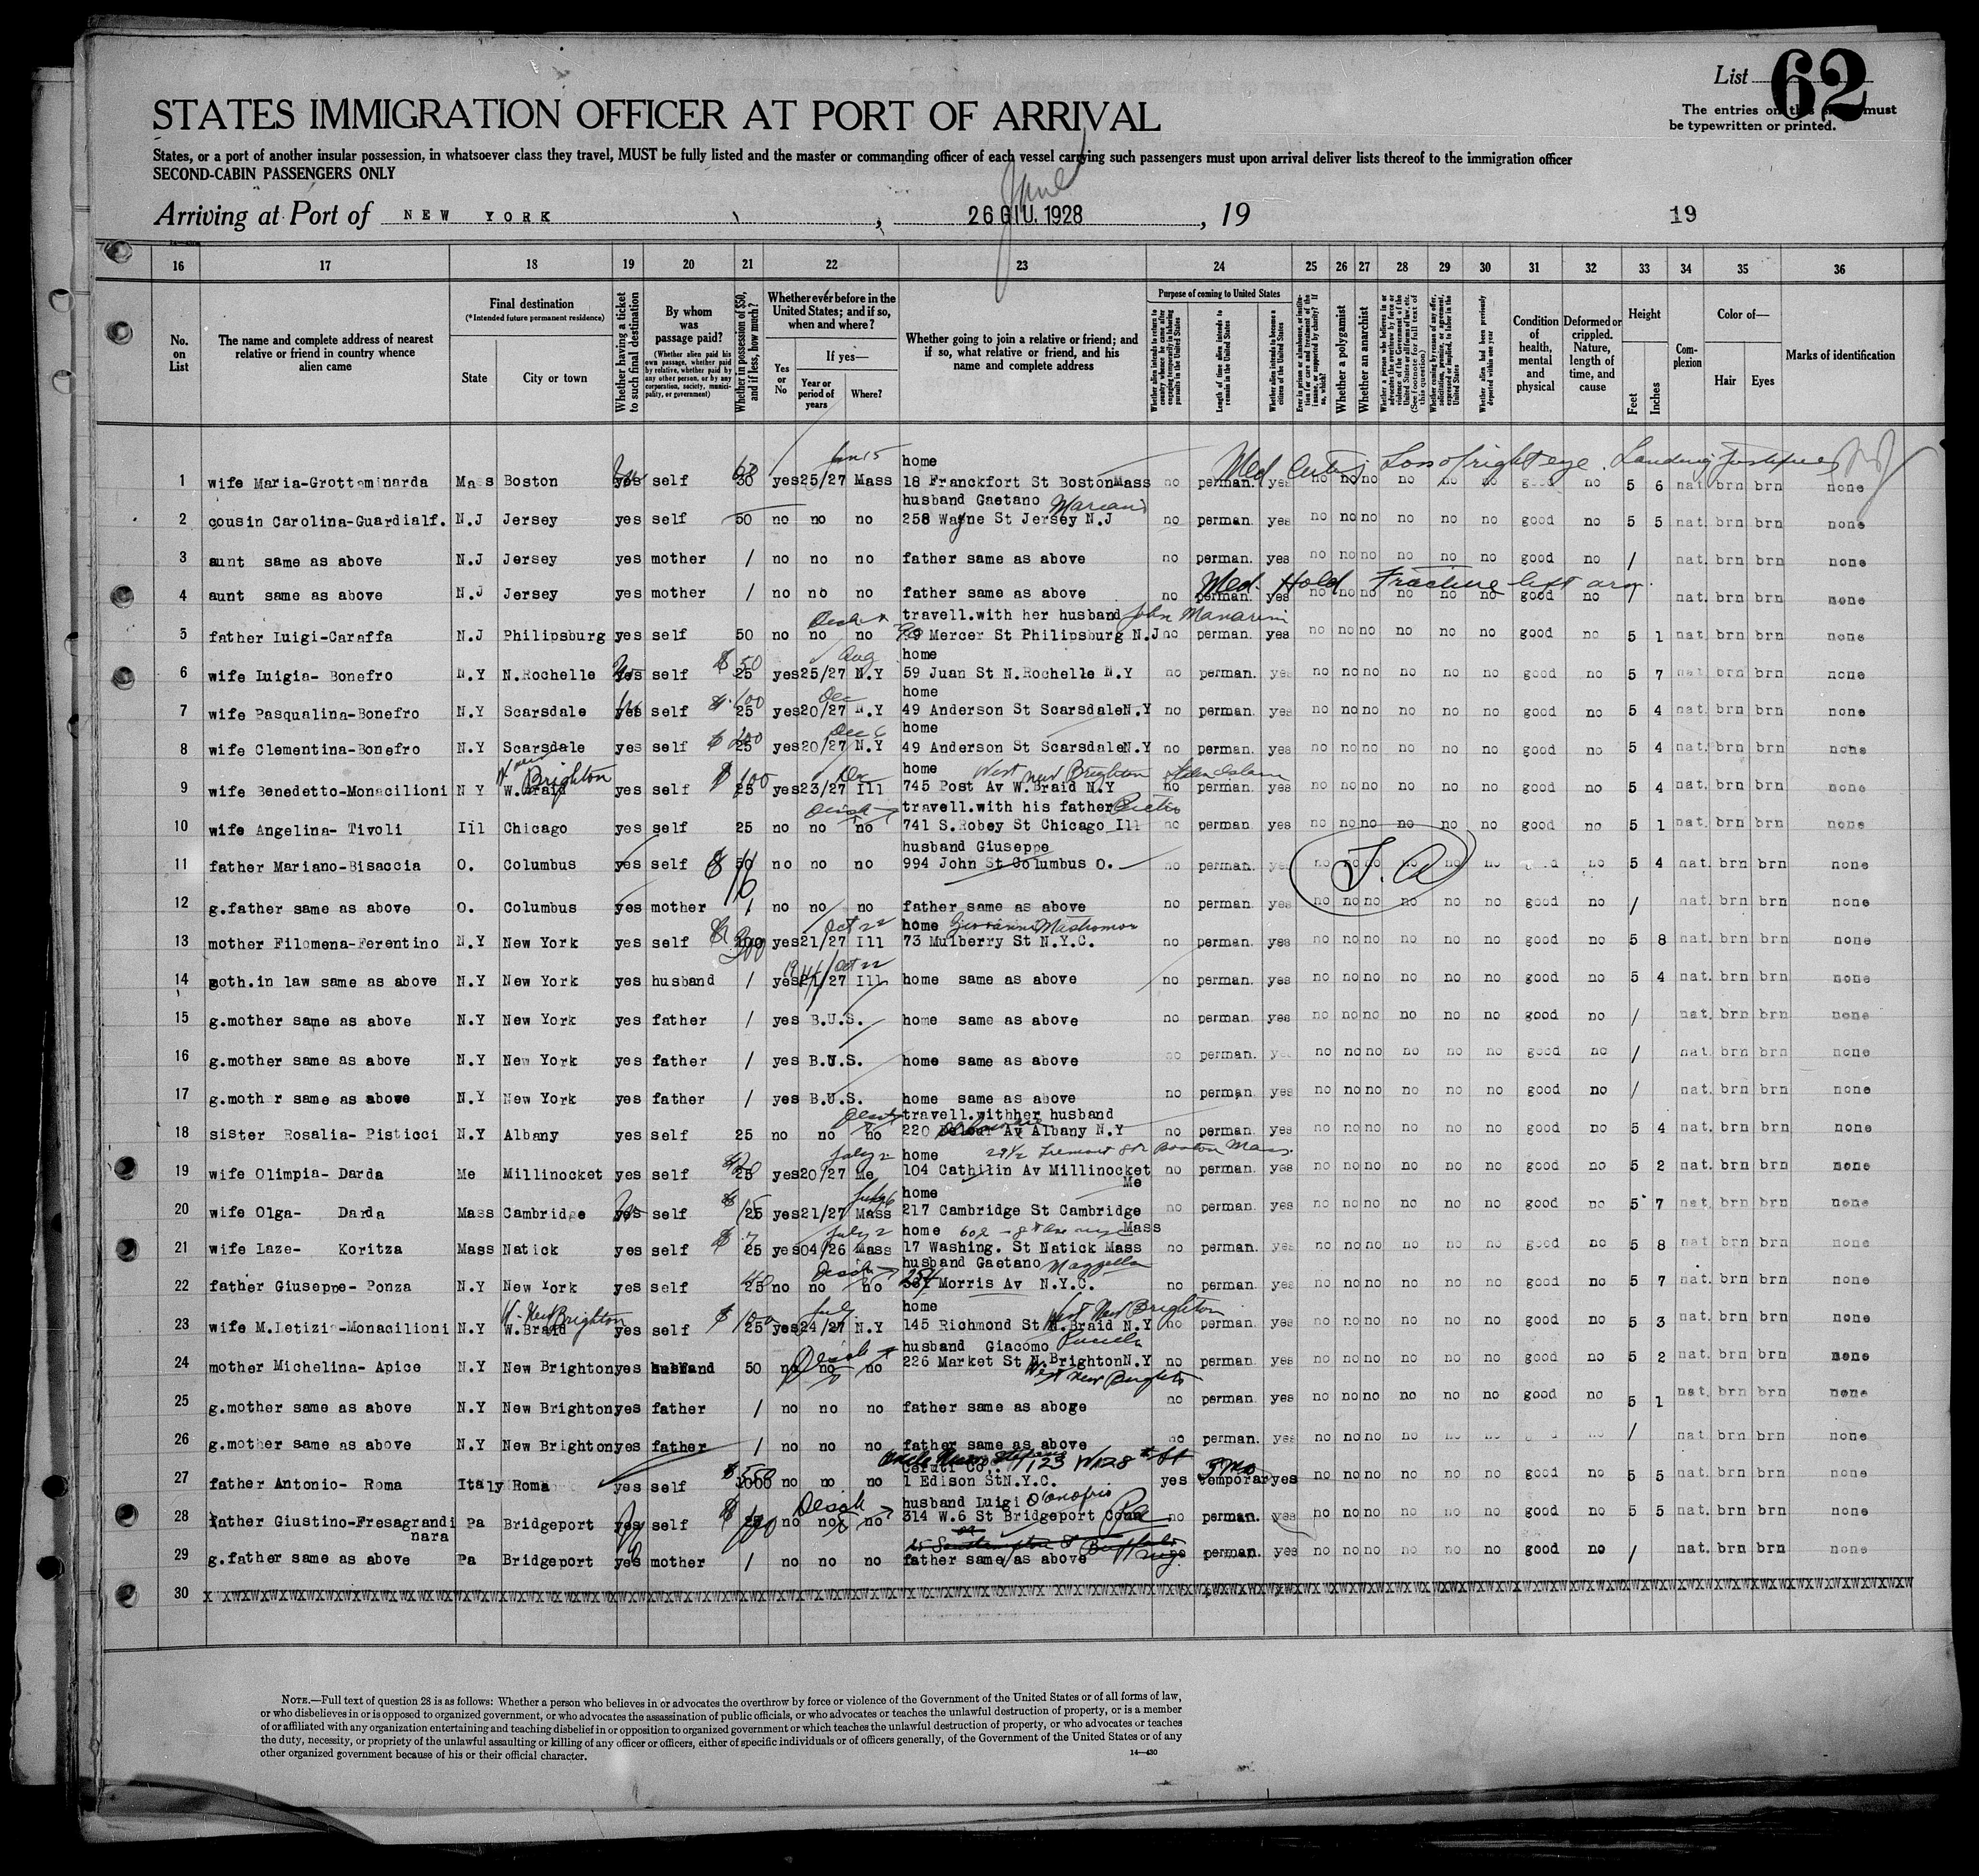 List 62
The entries on this sheet must
be typewritten or printed.
STATES IMMIGRATION OFFICER AT PORT OF ARRIVAL
States, or a port of another insular possession, in whatsoever class they travel, MUST be fully listed and the master or commanding officer of each vessel carrying such passengers must upon arrival deliver lists thereof to the immigration officer
SECOND-CABIN PASSENGERS ONLY
June
Arriving at Port of NEW YORK , 26 GIU. 1928 , 19 19
16 17 18 19 20 21 22 23 24 25 26 27 28 29 30 31 32 33 34 35 36
No. on List
The name and complete address of nearest relative or friend in country whence alien came
Final destination
(*Intended future permanent residence)
State City or town
Whether having a ticket to such final destination
By whom was passage paid?
(Whether alien paid his own passage, whether paid by relative, whether paid by any other person, or by any corporation, society, municipality, or government)
Whether in possession of $50, and if less, how much?
Whether ever before in the United States; and if so, when and where?
Yes or No
If yes—
Year or period of years Where?
Whether going to join a relative or friend; and if so, what relative or friend, and his name and complete address
Purpose of coming to United States
Whether alien intends to return to country whence he came after engaging temporarily in laboring pursuits in the United States
Length of time alien intends to remain in the United States
Whether alien intends to become a citizen of the United States
Ever in prison or almshouse, or institution for care and treatment of the insane, or supported by charity? If so, which?
Whether a polygamist
Whether an anarchist
Whether a person who believes in or advocates the overthrow by force or violence of the Government of the United States or all forms of law, etc. (See footnote for full text of this question)
Whether coming by reason of any offer, solicitation, promise, or agreement, expressed or implied, to labor in the United States
Whether alien had been previously deported within one year
Condition of health, mental and physical
Deformed or crippled. Nature, length of time, and cause
Height
Feet Inches
Complexion
Color of—
Hair Eyes
Marks of identification
home Med Cert; Loss of right eye. Landing Justified
1 wife Maria-Grottaminarda Mass Boston yes self 60 30 yes 25/27 Mass 18 Franckfort St Boston Mass no perman. yes no no no no no no good no 5 6 nat brn brn none
husband Gaetano
2 cousin Carolina-Guardialf. N.J Jersey yes self 50 no no no 258 Wayne St Jersey N.J no perman. yes no no no no no no good no 5 5 nat. brn brn none
3 aunt same as above N.J Jersey yes mother / no no no father same as above no perman. yes no no no no no no good no / nat. brn brn none
Med. Hold Fracture left arm.
4 aunt same as above N.J Jersey yes mother / no no no father same as above no perman. yes no no no no no no good no / nat. brn brn none
travell.with her husband John
5 father Luigi-Caraffa N.J Philipsburg yes self 50 no no no Mercer St Philipsburg N.J no perman. yes no no no no no no good no 5 1 nat. brn brn none
Aug home
6 wife Luigia- Bonefro N.Y N.Rochelle yes self $ 50 25 yes 25/27 N.Y 59 Juan St N.Rochelle N.Y no perman. yes no no no no no no good no 5 7 nat brn brn none
Dec home
7 wife Pasqualina-Bonefro N.Y Scarsdale yes self $ 100 25 yes 20/27 N.Y 49 Anderson St Scarsdale N.Y no perman. yes no no no no no no good no 5 4 nat. brn brn none
Dec home
8 wife Clementina-Bonefro N.Y Scarsdale yes self $ 25 yes 20/27 N.Y 49 Anderson St Scarsdale N.Y no perman. yes no no no no no no good no 5 4 nat. brn brn none
W. New Brighton home West New Brighton Staten Island
9 wife Benedetto-Monacilioni N Y W.Braid yes self $ 100 25 yes 23/27 Ill 745 Post Av W.Braid N.Y no perman. yes no no no no no no good no 5 4 nat. brn brn none
travell.with his father
10 wife Angelina- Tivoli Ill Chicago yes self 25 no no no 741 S.Robey St Chicago Ill no perman. yes no no no no no no good no 5 1 nat. brn brn none
husband Giuseppe
11 father Mariano-Bisaccia O. Columbus yes self $ 50 no no no 994 John St Columbus O. no perman. yes no no no no no no no 5 4 nat. brn brn none
12 g.father same as above O. Columbus yes mother / no no no father same as above no perman. yes no no no no no no good no / nat. brn brn none
Oct 22 home
13 mother Filomena-Ferentino N.Y New York yes self 200 yes 21/27 Ill 73 Mulberry St N.Y.C. no perman. yes no no no no no no good no 5 8 nat. brn brn none
Oct 22
14 moth.in law same as above N.Y New York yes husband / yes 21/27 Ill home same as above no perman. yes no no no no no no good no 5 4 nat. brn brn none
15 g.mother same as above N.Y New York yes father / yes B.U.S. home same as above no perman. yes no no no no no no good no / nat. brn brn none
16 g.mother same as above N.Y New York yes father / yes B.U.S. home same as above no perman. yes no no no no no no good no / nat. brn brn none
17 g.moth r same as above N.Y New York yes father / yes B.U.S. home same as above no perman. yes no no no no no no good no / nat. brn brn none
travell.withher husband
18 sister Rosalia- Pisticci N.Y Albany yes self 25 no no no 220 Av Albany N.Y no perman. yes no no no no no no good no 5 4 nat. brn brn none
July 2 home 29½ Tremont St Boston Mass.
19 wife Olimpia- Darda Me Millinocket yes self 25 yes 20/27 Me 104 Cathilin Av Millinocket Me no perman. yes no no no no no no good no 5 2 nat. brn brn none
home
20 wife Olga- Darda Mass Cambridge yes self $ 25 yes 21/27 Mass 217 Cambridge St Cambridge Mass no perman. yes no no no no no no good no 5 7 nat. brn brn none
July 2 home
21 wife Laze- Koritza Mass Natick yes self $ 25 yes 04/26 Mass 17 Washing. St Natick Mass no perman. yes no no no no no no good no 5 8 nat. brn brn none
husband Gaetano
22 father Giuseppe- Ponza N.Y New York yes self 25 no no no Morris Av N.Y.C. no perman. yes no no no no no no good no 5 7 nat. brn brn none
W. New Brighton July home West New Brighton
23 wife M.Letizia-Monacilioni N.Y W.Braid yes self $ 100 25 yes 24/27 N.Y 145 Richmond St W.Braid N.Y no perman. yes no no no no no no good no 5 3 nat. brn brn none
husband Giacomo
24 mother Michelina- Apice N.Y New Brighton yes husband 50 no no no 226 Market St N.Brighton N.Y no perman. yes no no no no no no good no 5 2 nat. brn brn none
West New Brighton
25 g.mother same as above N.Y New Brighton yes father / no no no father same as aboge no perman. yes no no no no no no good no 5 1 nat. brn brn none
26 g.mother same as above N.Y New Brighton yes father / no no no father same as above no perman. yes no no no no no no no / nat brn brn none
Ceruti Co. 123 W128th St
27 father Antonio- Roma Italy Roma yes self $ 550 1000 no no no 1 Edison St N.Y.C. yes temporar yes no no no no no no good no 5 5 nat. brn brn none
husband Luigi D'Onofrio
28 father Giustino-Fresagrandi nara Pa Bridgeport yes self $ 100 25 no no no 314 W.6 St Bridgeport Conn Pa no perman. yes no no no no no no good no 5 5 nat. brn brn none
29 g.father same as above Pa Bridgeport yes mother / no no no father same as above no perman. yes no no no no no no good no / nat. brn brn none
30
NOTE.—Full text of question 28 is as follows: Whether a person who believes in or advocates the overthrow by force or violence of the Government of the United States or of all forms of law,
or who disbelieves in or is opposed to organized government, or who advocates the assassination of public officials, or who advocates or teaches the unlawful destruction of property, or is a member
of or affiliated with any organization entertaining and teaching disbelief in or opposition to organized government or which teaches the unlawful destruction of property, or who advocates or teaches
the duty, necessity, or propriety of the unlawful assaulting or killing of any officer or officers, either of specific individuals or of officers generally, of the Government of the United States or of any
other organized government because of his or their official character.
14—430